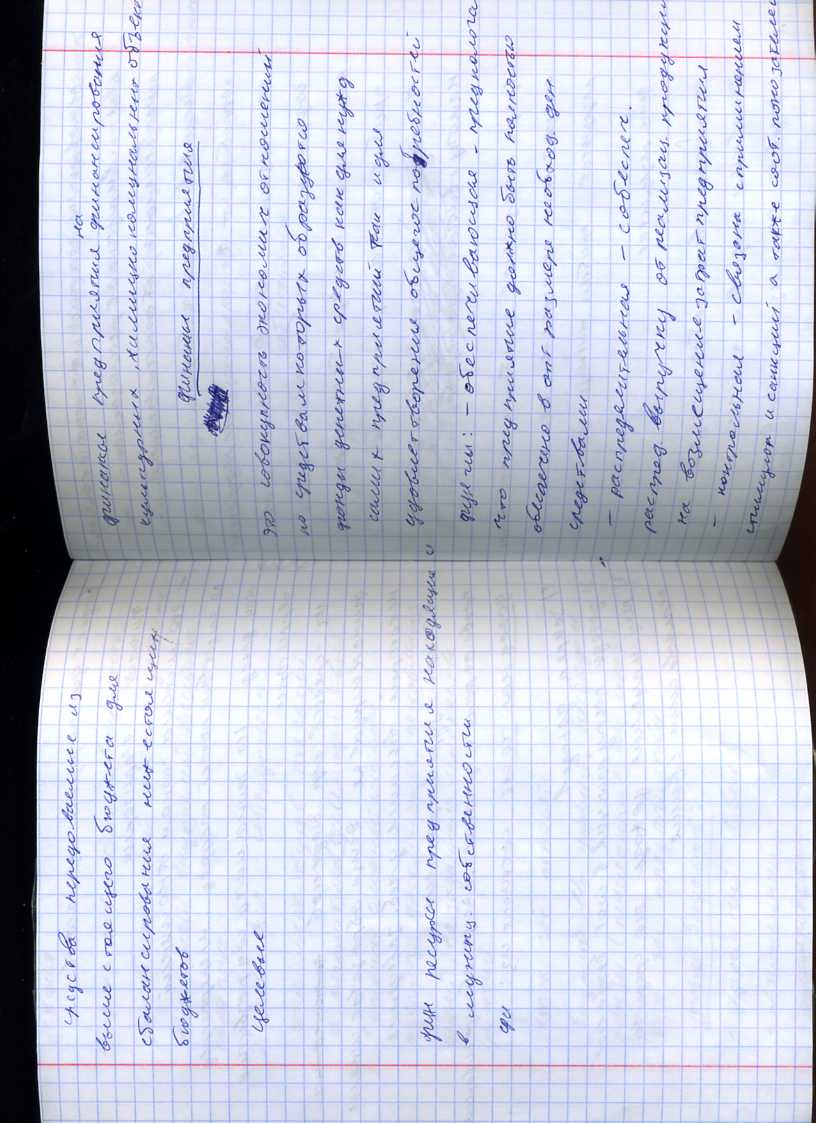 средства передоваемые из
выше стоящего бюджета для
сбалансирования нижестоящих
бюджетов
Целевые
фин ресурсы предприятия находящие и
в муницу собственности
фи
на
финансы предприятия финансирования
жилищно комунальных объек
финансы предприятия
это совокупность экономич отношений
по средствам которых образуются
фонды денетных средств как для нужд
самих предприятий так и для
удовлетворения общегос потребностей
функции: - обеспечивающая - предполога
что предприятие должно быть полностью
обеспечено в опт размере необход ден
средствами
- распределительная - собеспеч.
распред выручку от реализац. продукции
на возмещение затрат предприятия
- контрольная - связана с приминением
стимулов и санкций а также соот. показателей